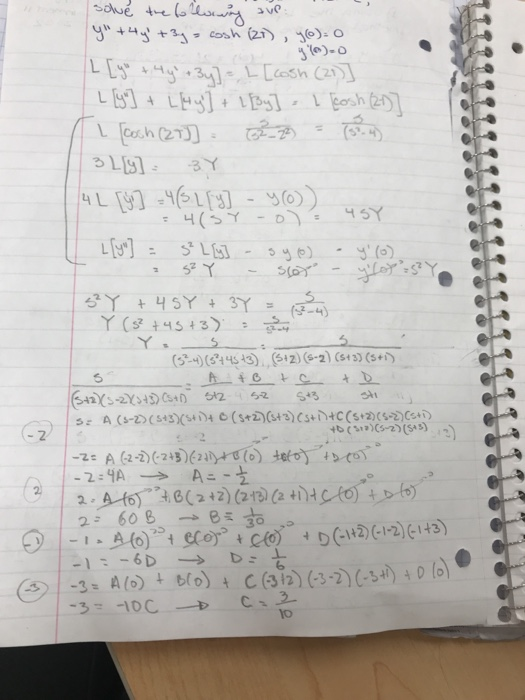 solve the following IVP:
y" + 4y' + 3y = cosh(2t), y(0)=0
y'(0)=0
L[y" + 4y' + 3y] = L[cosh(2t)]
L[y"] + L[4y'] + L[3y] = L[cosh(2t)]
L[cosh(2t)] = s/(s²-2²) = s/(s²-4)
3L[y] = 3Y
4L[y'] = 4(sL[y] - y(0))
= 4(sY - 0) = 4sY
L[y"] = s²L[y] - sy(0) - y'(0)
= s²Y - s(0)→0 - y'(0)→0 = s²Y
s²Y + 4sY + 3Y = s/(s²-4)
Y(s²+4s+3) = s/s²-4
Y = s/(s²-4)(s²+4s+3), s/(s+2)(s-2)(s+3)(s+1)
s/(s+2)(s-2)(s+3)(s+1) = A/s+2 + B/s-2 + C/s+3 + D/s+1
s = A(s-2)(s+3)(s+1)+B(s+2)(s+3)(s+1)+C(s+2)(s-2)(s+1)
+D(s+2)(s-2)(s+3)
-2
-2 = A(-2-2)(-2+3)(-2+1)+B(0)+C(0)+D(0)→0
-2=4A → A=-1/2
2
2 = A(0)→0 + B(2+2)(2+3)(2+1)+C(0)→0+D(0)→0
2 = 60B → B=1/30
-1
-1 = A(0)→0 + B(0)→0 + C(0)→0 + D(-1+2)(-1-2)(-1+3)
-1 = -6D → D=1/6
-3
-3 = A(0) + B(0) + C(-3+2)(-3-2)(-3+1) + D(0)
-3 = -10C → C=3/10